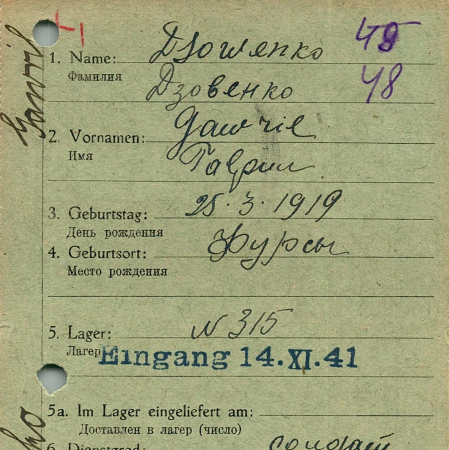 1. Name: Dsowenko 45
Фамилия Дзовенко 48
2. Vornamen: Gawril
Имя Гаврил
3. Geburtstag: 25.3.1919
День рождения
4. Geburtsort: Фурсы
Место рождения
5. Lager: N 315
Лагерь
Eingang 14.XI.41
5a. Im Lager eingeliefert am:
Доставлен в лагерь (число)
6. Dienstgrad: солдат
Gawril